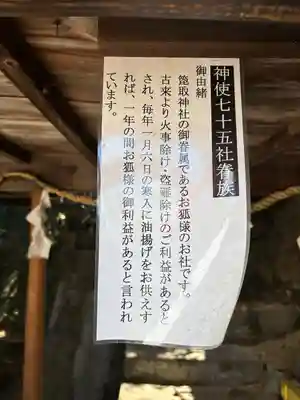 神使七十五社眷族
御由緒
箆取神社の御眷属であるお狐様のお社です。
古来より火事除け・盗難除けのご利益があると
され、毎年一月六日の寒入に油揚げをお供えす
れば、一年の間お狐様の御利益があると言われ
ています。